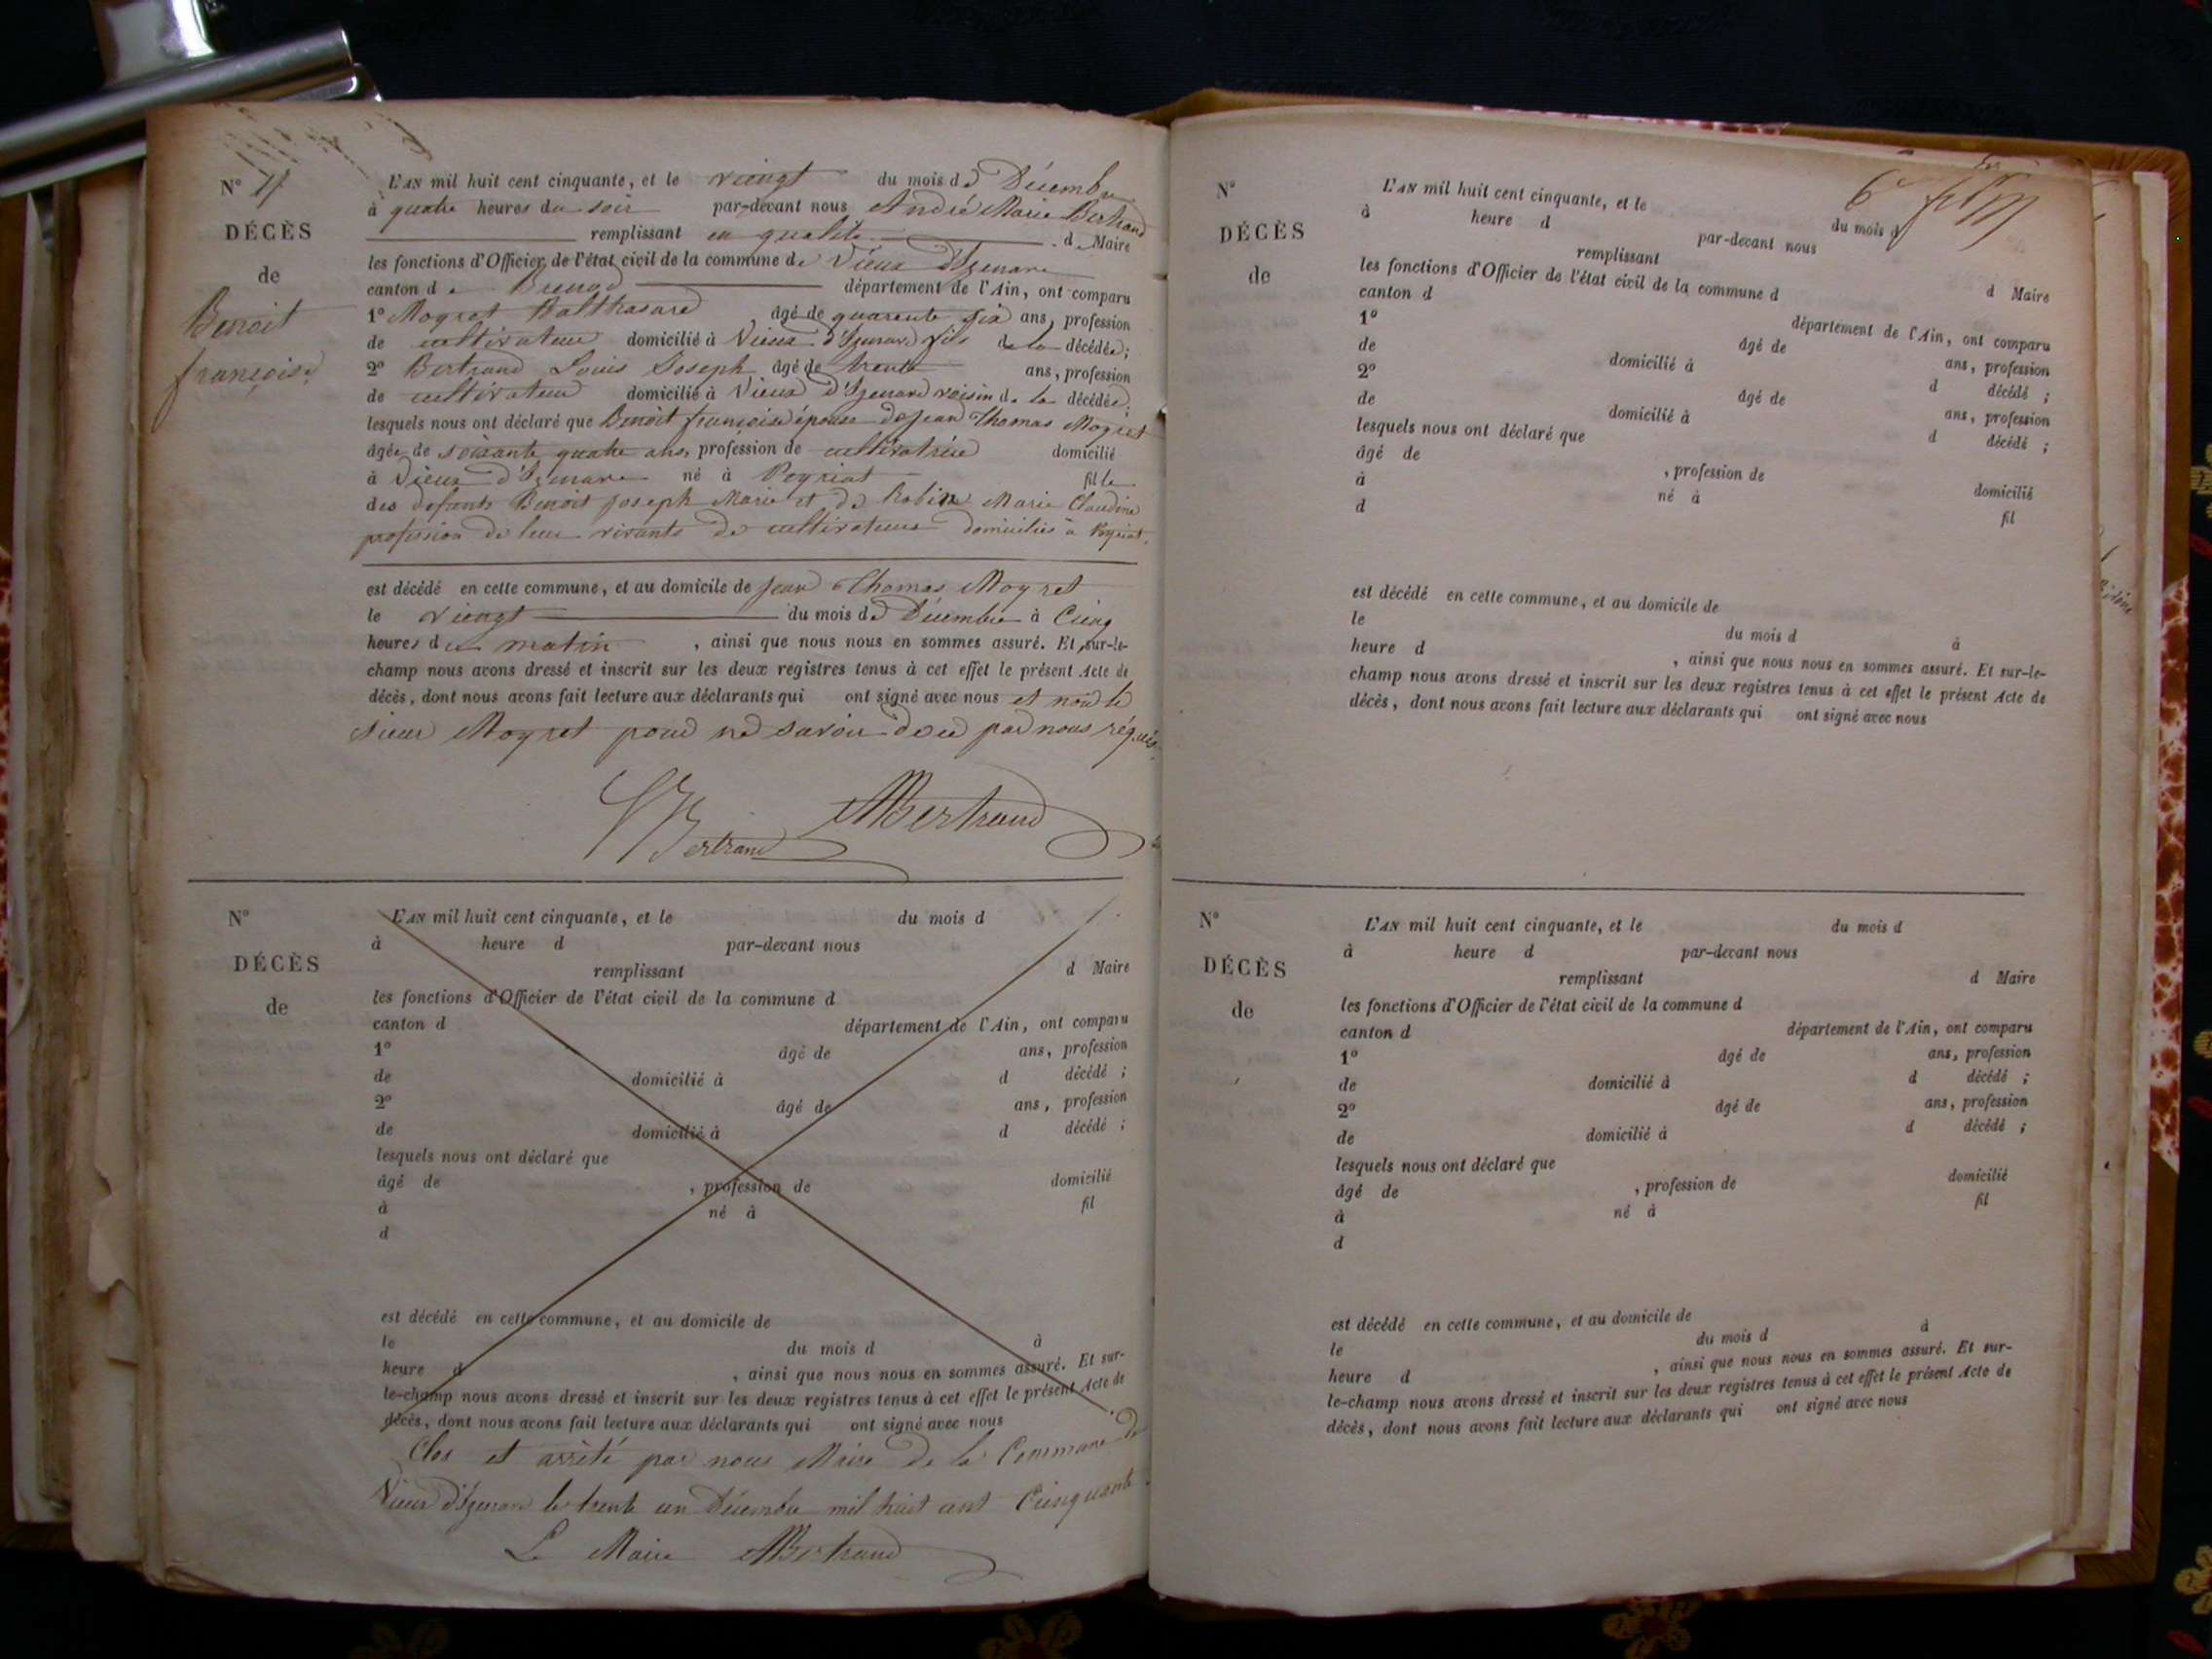 N° 17
DÉCÈS
de
Benoit
françoise
L'AN mil huit cent cinquante, et le vingt du mois de Décembre
à quatre heures du soir par-devant nous André Marie Bertrand
remplissant en qualité d Maire
les fonctions d'Officier de l'état civil de la commune de Vieux d'Izenave
canton de Brenod département de l'Ain, ont comparu
1° Moyret Balthasard âgé de quarente six ans, profession
de cultivateur domicilié à Vieux d'Izenave fils de la décédée;
2° Bertrand Louis Joseph âgé de trente ans, profession
de cultivateur domicilié à Vieux d'Izenave voisin de la décédée;
lesquels nous ont déclaré que Benoit françoise épouse de Jean Thomas Moyret
âgée de soixante quatre ans, profession de cultivatrice domicilié
à Vieux d'Izenave né à Peyriat fille
des defunts Benoit Joseph Marie et de Robin Marie Claudine
profession de leur vivants de cultivateurs domiciliés à Peyriat.
est décédé en cette commune, et au domicile de Jean Thomas Moyret
le vingt du mois de Décembre à Cinq
heures du matin , ainsi que nous nous en sommes assuré. Et sur-le-
champ nous avons dressé et inscrit sur les deux registres tenus à cet effet le présent Acte de
décès, dont nous avons fait lecture aux déclarants qui ont signé avec nous et non le
sieur Moyret pour ne savoir de ce par nous réquis
Bertrand Bertrand
N°
DÉCÈS
de
L'AN mil huit cent cinquante, et le du mois d
à heure d par-devant nous
remplissant d Maire
les fonctions d'Officier de l'état civil de la commune d
canton d département de l'Ain, ont comparu
1° âgé de ans, profession
de domicilié à d décédé ;
2° âgé de ans, profession
de domicilié à d décédé ;
lesquels nous ont déclaré que
âgé de , profession de domicilié
à né à fil
d
est décédé en cette commune, et au domicile de
le du mois d à
heure d , ainsi que nous nous en sommes assuré. Et sur-
le-champ nous avons dressé et inscrit sur les deux registres tenus à cet effet le présent Acte de
décès, dont nous avons fait lecture aux déclarants qui ont signé avec nous
Clos et arrêté par nous Maire de la Commune de
Vieux d'Izenave le trente un Décembre mil huit cent Cinquante
Le Maire Bertrand
6e
N°
DÉCÈS
de
L'AN mil huit cent cinquante, et le du mois d
à heure d par-devant nous
remplissant d Maire
les fonctions d'Officier de l'état civil de la commune d
canton d département de l'Ain, ont comparu
1° âgé de ans, profession
de domicilié à d décédé ;
2° âgé de ans, profession
de domicilié à d décédé ;
lesquels nous ont déclaré que
âgé de , profession de domicilié
à né à fil
d
est décédé en cette commune, et au domicile de
le du mois d à
heure d , ainsi que nous nous en sommes assuré. Et sur-le-
champ nous avons dressé et inscrit sur les deux registres tenus à cet effet le présent Acte de
décès, dont nous avons fait lecture aux déclarants qui ont signé avec nous
N°
DÉCÈS
de
L'AN mil huit cent cinquante, et le du mois d
à heure d par-devant nous
remplissant d Maire
les fonctions d'Officier de l'état civil de la commune d
canton d département de l'Ain, ont comparu
1° âgé de ans, profession
de domicilié à d décédé ;
2° âgé de ans, profession
de domicilié à d décédé ;
lesquels nous ont déclaré que
âgé de , profession de domicilié
à né à fil
d
est décédé en cette commune, et au domicile de
le du mois d à
heure d , ainsi que nous nous en sommes assuré. Et sur-
le-champ nous avons dressé et inscrit sur les deux registres tenus à cet effet le présent Acte de
décès, dont nous avons fait lecture aux déclarants qui ont signé avec nous